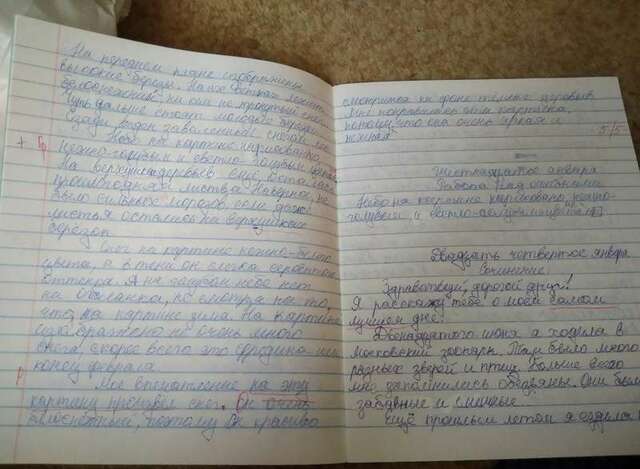 На переднем плане изображены
высокие берёзы. На их ветках лежит
белоснежный,
Чуть дальше стоят молодые берёзы.
Сзади виден заваленный снегом лес.
Небо на картине нарисовано
нежно-голубым и светло-голубым цветом.
+ Гр На верхушках деревьев ещё осталась
прошлогодняя листва. Наверное, не
было сильных морозов, если даже
листья остались на верхушках
берёзок.
Снег на картине нежно-белого
цвета, а в тени он слегка сероватого
оттенка. А на голубом небе нет
ни облачка, но смотря на то,
что на картине зима. На картине
изображено не очень много
снега, скорее всего это середина или
конец февраля.
Р Моё впечатление на эту
картину произвёл снег. Он очень
белоснежный, поэтому он красиво
смотрится на фоне тёмных деревьев.
Мне понравилась эта картина,
потому, что она очень яркая и
нежная.
5/5
Шестнадцатое января
Работа над ошибками
Небо на картине нарисовано нежно-
голубым и светло-голубым цветом
Двадцать четвёртое января
Сочинение.
Здравствуй, дорогой друг!
Я расскажу тебе о моём самом
лучшем дне.
Двенадцатого июня я ходила в
Московский зоопарк. Там было много
разных зверей и птиц. Больше всего
мне запомнились обезьяны. Они были
забавные и смешные.
Ещё прошлым летом я ездила